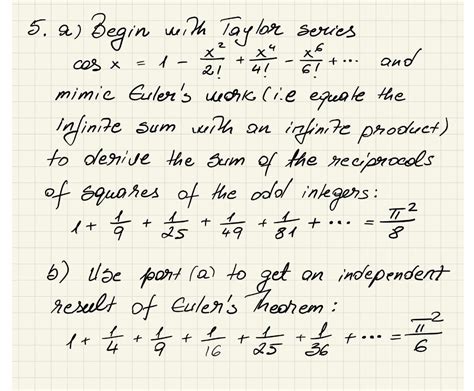 5. a) Begin with Taylor series
cos x = 1 - x²/2! + x⁴/4! - x⁶/6! + ... and
mimic Euler's work (i.e equate the
Infinite sum with an infinite product)
to derive the sum of the reciprocals
of squares of the odd integers:
1 + 1/9 + 1/25 + 1/49 + 1/81 + ... = π²/8
b) Use part (a) to get an independent
result of Euler's Theorem:
1 + 1/4 + 1/9 + 1/16 + 1/25 + 1/36 + ... = π²/6